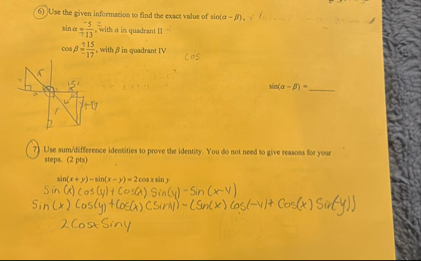 6) Use the given information to find the exact value of sin(α − β).
sin α = 5/13, with α in quadrant II
cos β = 15/17, with β in quadrant IV
cos
sin(α − β) = ______
7) Use sum/difference identities to prove the identity. You do not need to give reasons for your
steps. (2 pts)
sin(x + y) − sin(x − y) = 2 cos x sin y
Sin (x) Cos(y) + Cos(x) Sin(y) − Sin (x−y)
Sin(x) Cos(y) + Cos(x) Sin(y) − (Sin(x) Cos(−y) + Cos(x) Sin(−y))
2 Cosx Siny